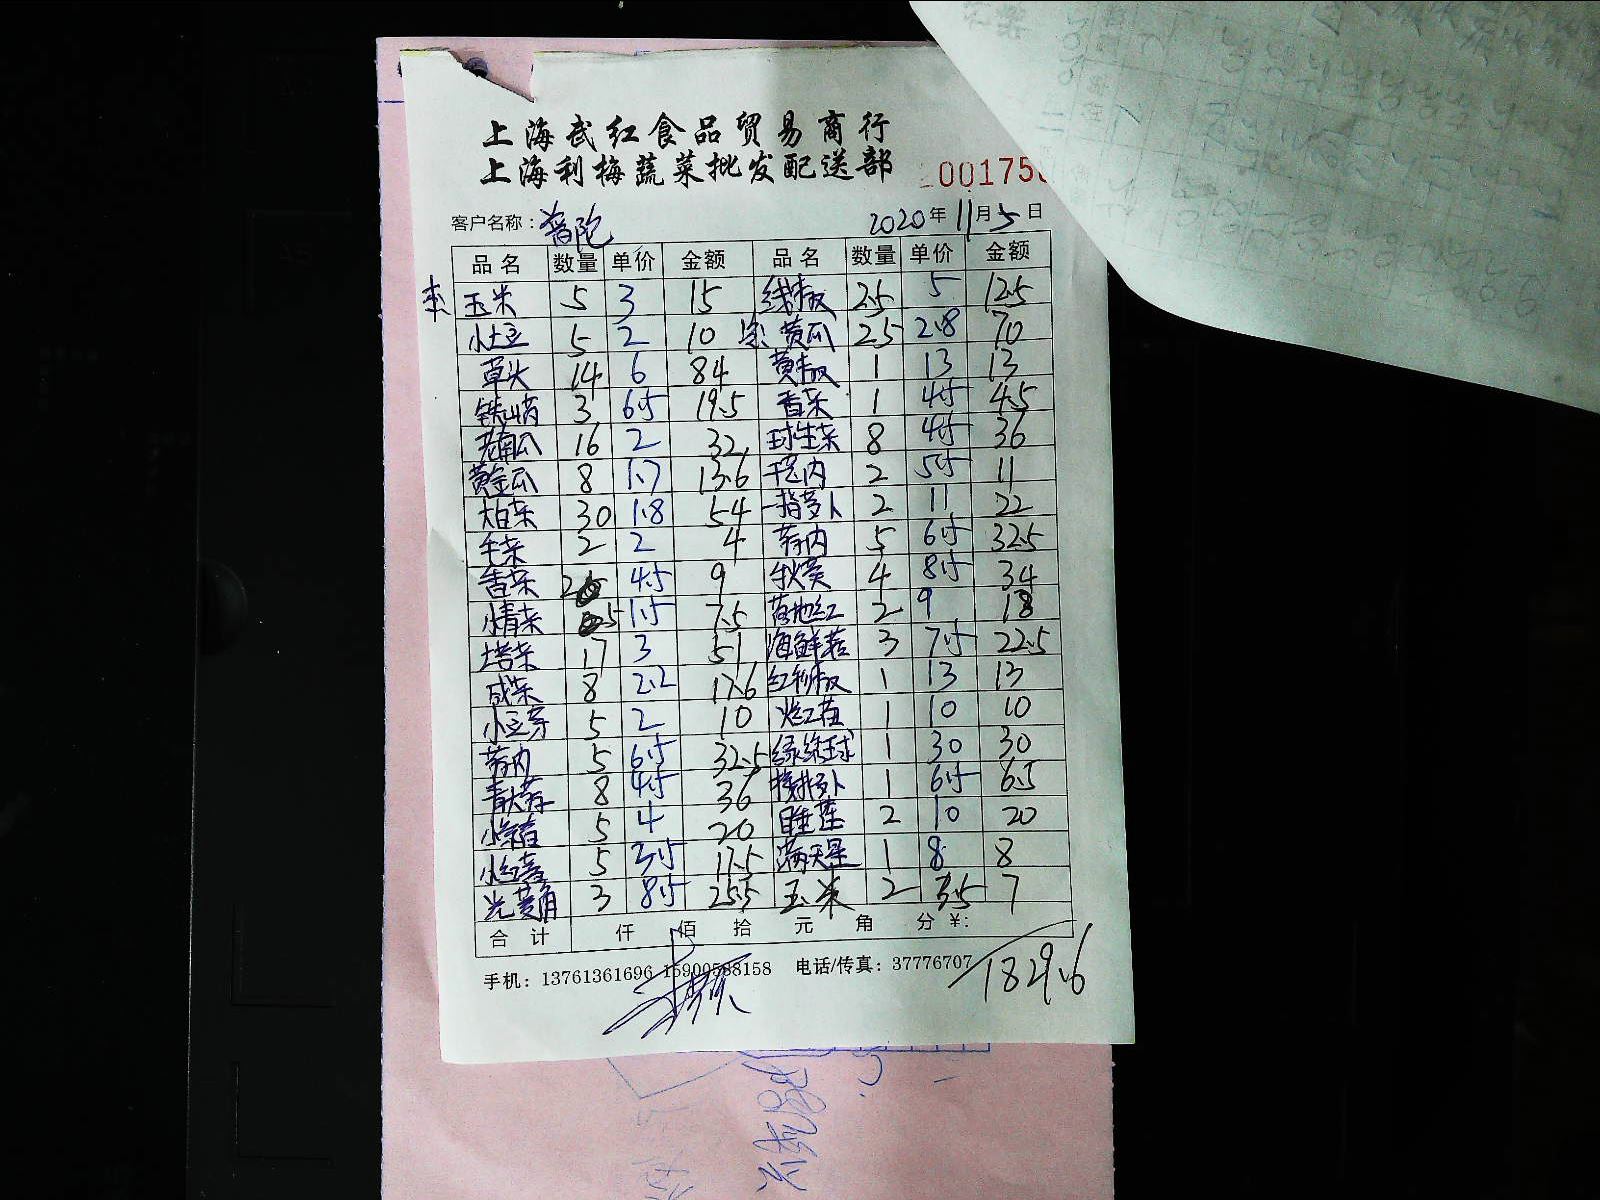 上海武红食品贸易商行
上海利梅蔬菜批发配送部
001758
客户名称：普陀 2020年11月5日
品名 数量 单价 金额 品名 数量 单价 金额
玉米 5 3 15 线椒 25 5 125
小土豆 5 2 10 黄瓜 25 2.8 70
草头 14 6 84 黄椒 1 13 13
铁山药 3 6.5 19.5 香菜 1 4.5 4.5
老南瓜 16 2 32 球生菜 8 4.5 36
黄金瓜 8 1.7 13.6 2 5.5 11
大白菜 30 1.8 54 一指萝卜 2 11 22
生菜 2 2 4 芹内 5 6.5 32.5
香菜 2 4.5 9 秋葵 4 8.5 34
小青菜 5 1.5 7.5 落地红 2 9 18
塔菜 17 3 51 海鲜菇 3 7.5 22.5
咸菜 8 2.2 17.6 红椒 1 13 13
小豆芽 5 2 10 1 10 10
芹内 5 6.5 32.5 绿绣球 1 30 30
青大蒜 8 4.5 36 1 6.5 6.5
5 4 20 睡莲 2 10 20
5 3.5 17.5 满天星 1 8 8
3 8.5 25.5 玉米 2 3.5 7
合计 仟 佰 拾 元 角 分 ¥:
1829.6
手机：13761361696 15900588158 电话/传真：37776707